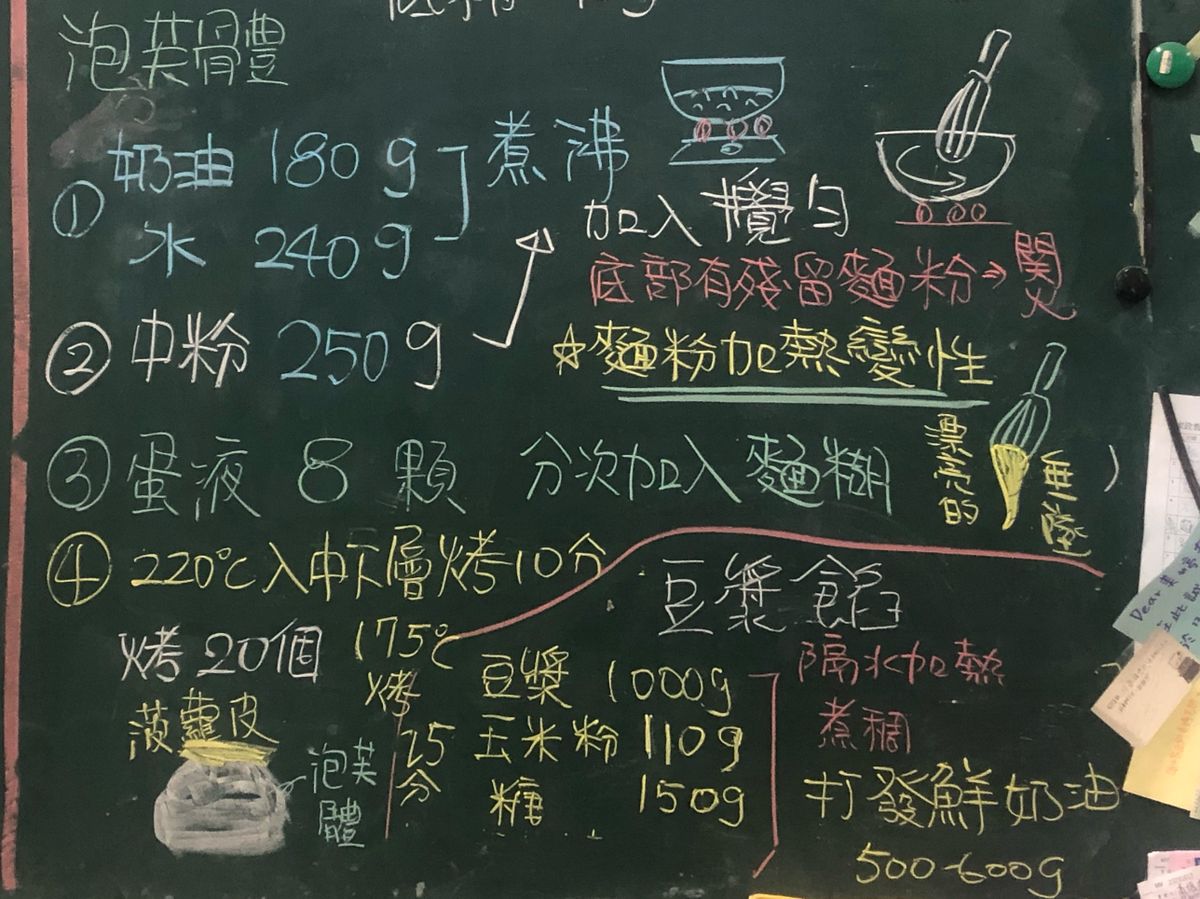 泡芙體
① 奶油 180g 煮沸
水 240g
加入攪勻
底部有殘留麵粉→關火
② 中粉 250g
☆麵粉加熱變性
③ 蛋液 8 顆 分次加入麵糊
漂亮的
垂墜
④ 220℃入中下層烤10分
175℃
烤
25
分
烤20個
菠蘿皮
泡芙
體
豆漿餡
豆漿 1000g
玉米粉 110g
糖 150g
隔水加熱
煮稠
打發鮮奶油
500-600g
Dear